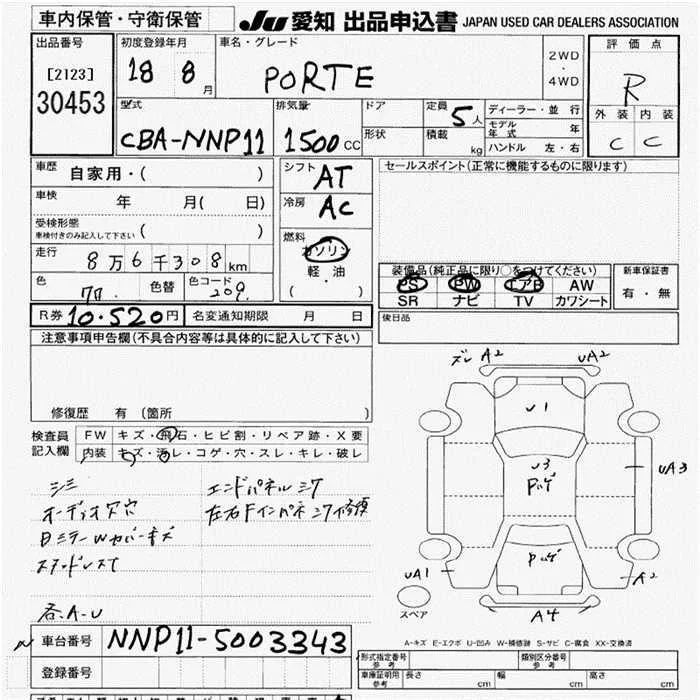 車内保管・守衛保管
JU 愛知 出品申込書 JAPAN USED CAR DEALERS ASSOCIATION
出品番号 [2123] 30453
初度登録年月 18 8 月
車名・グレード PORTE
2WD ・ 4WD
評価点 R
外装 内装 C C
型式 CBA-NNP11
排気量 1500 CC
ドア
形状
定員 5 人
積載 kg
ディーラー・並行
モデル年式 年
ハンドル 左・右
車歴 自家用・( )
車検 年 月( 日)
受検形態 ( )
車検付きのみ記入して下さい
走行 8万6千308km
色 色替 色コード 209.
シフト AT
冷房 AC
燃料 ガソリン 軽・油 ( ・ )
セールスポイント(正常に機能するものに限ります)
装備品(純正品に限り○をつけてください)
PS PW エアB AW
SR ナビ TV カワシート
新車保証書 有・無
後日品
R券 10.520円 名変通知期限 月 日
注意事項申告欄(不具合内容等は具体的に記入して下さい)
修復歴 有 (箇所 )
検査員記入欄
FW キズ・飛石・ヒビ割・リペア跡・X要
内装 キズ・汚レ・コゲ・穴・スレ・キレ・破レ
シミ
オーディオ穴
エンドパネルミク
各A-U
ズレ A2 UA2
U1
U3
UA3
UA1
A2
A4
スペア
A-キズ E-エクボ U-凹み W-補修跡 S-サビ C-腐食 XX-交換済
車台番号 NNP11-5003343
登録番号
形式指定番号 参考 類別区分番号 参考
車庫証明用 参考 長さ cm 幅 cm 高さ cm